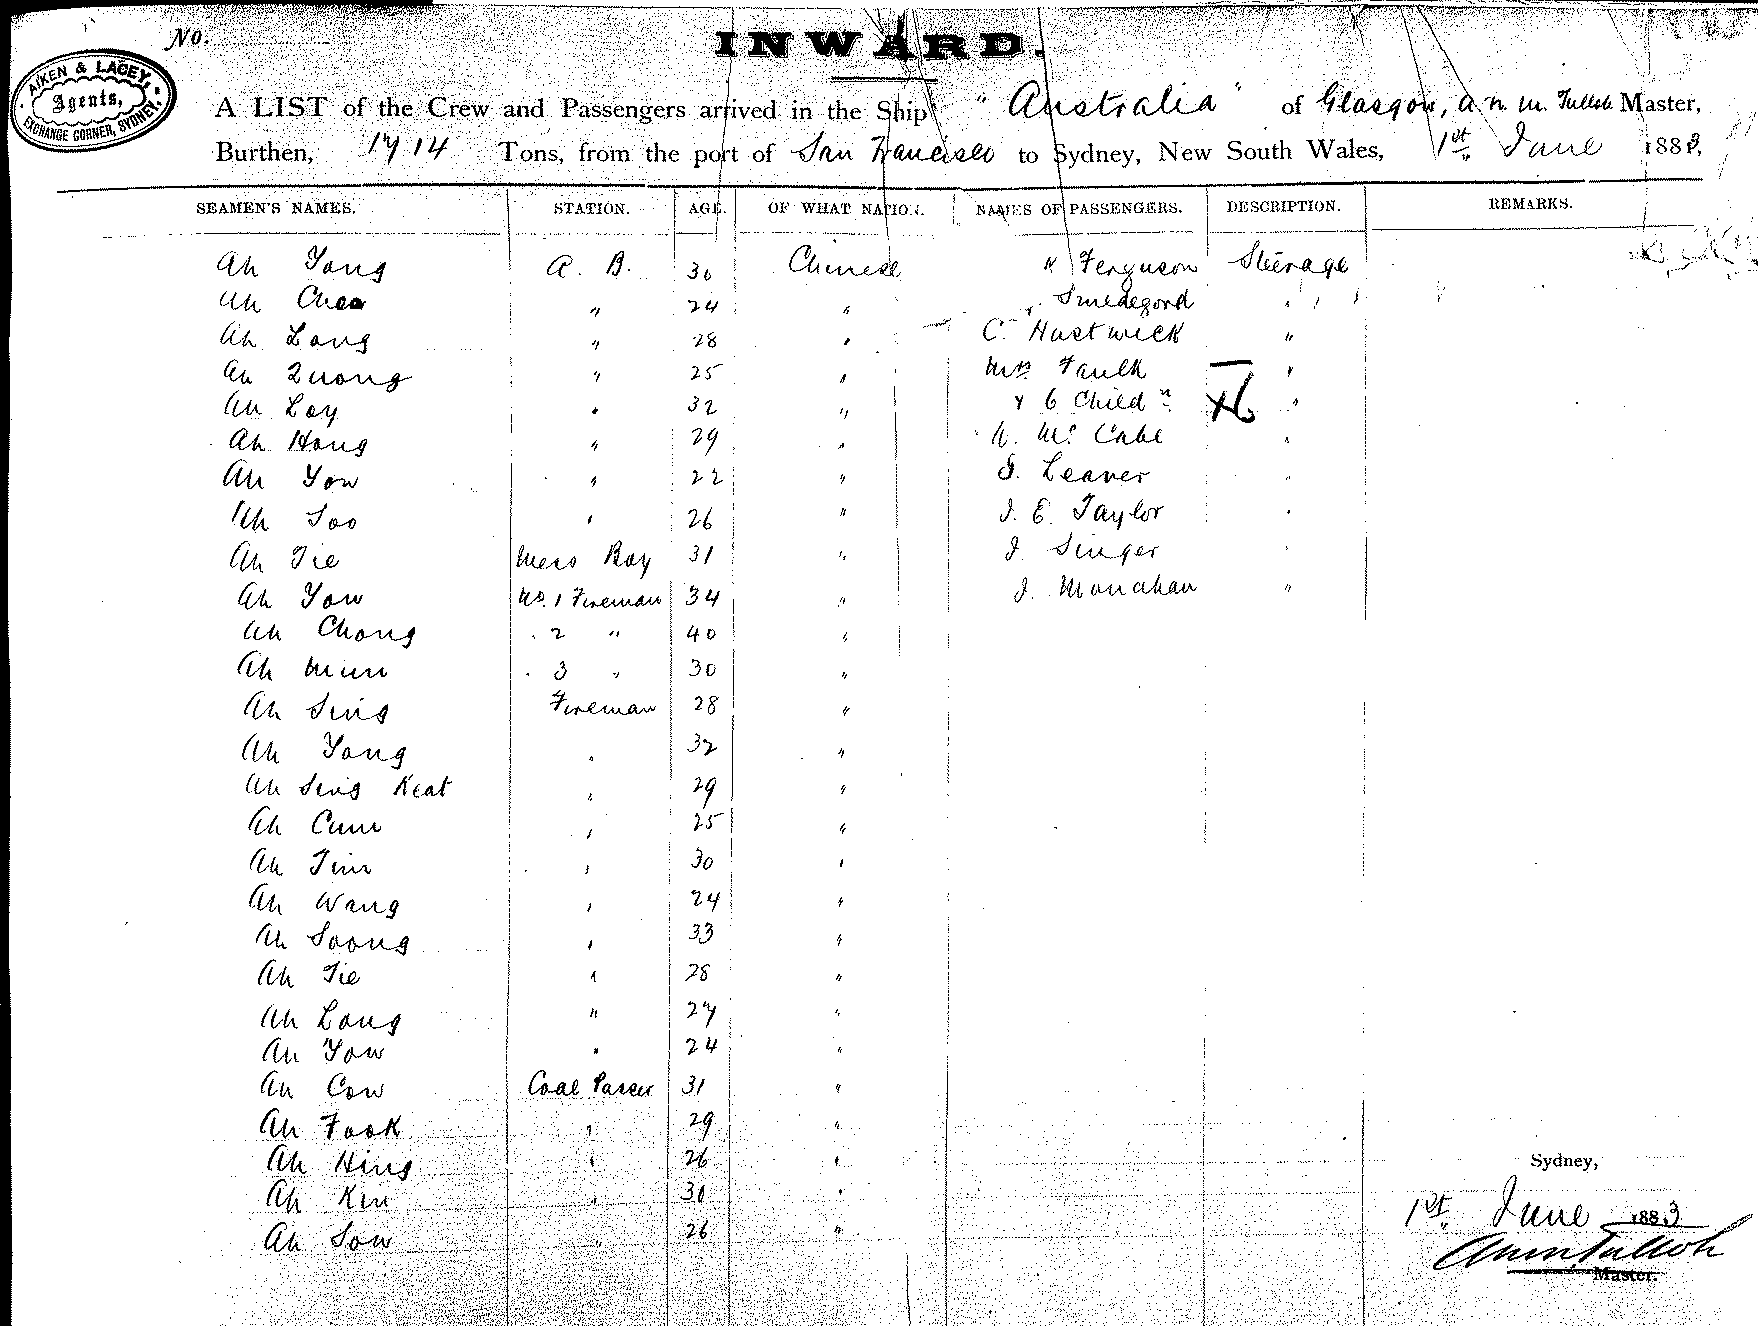 No.
INWARD.
AIKEN & LACEY,
Agents,
EXCHANGE CORNER, SYDNEY.
A LIST of the Crew and Passengers arrived in the Ship "Australia" of Glasgow, Tulloch Master,
Burthen, 1714 Tons, from the port of San Francisco to Sydney, New South Wales, 1st June 1883,
SEAMEN'S NAMES. STATION. AGE. OF WHAT NATION. NAMES OF PASSENGERS. DESCRIPTION. REMARKS.
Ah Yong A. B. 30 Chinese Ferguson Steerage
Ah Choo " 24 " Smedegord "
Ah Long " 28 " C. Hastwick "
Ah Quong " 25 " Mrs Faulk "
Ah Loy " 32 " & 6 Childn "
Ah Hong " 29 " Mc Cabe "
Ah Yow " 22 " Leaver "
Ah Soo " 26 " J. E. Taylor "
Ah Tie Mess Boy 31 " J. Singer "
Ah Yow No. 1 Fireman 34 " J. Monahan "
Ah Chong " 2 " 40 "
Ah Mun " 3 " 30 "
Ah Sing Fireman 28 "
Ah Yong " 32 "
Ah Sing Keat " 29 "
Ah Cum " 25 "
Ah Tim " 30 "
Ah Wang " 24 "
Ah Soong " 33 "
Ah Tie " 28 "
Ah Long " 27 "
Ah Yow " 24 "
Ah Cow Coal Passer 31 "
Ah Fook " 29 "
Ah Hing " 26 "
Ah Kin " 30 "
Ah Sow " 26 "
Sydney,
1st June 1883
Tulloch
Master.